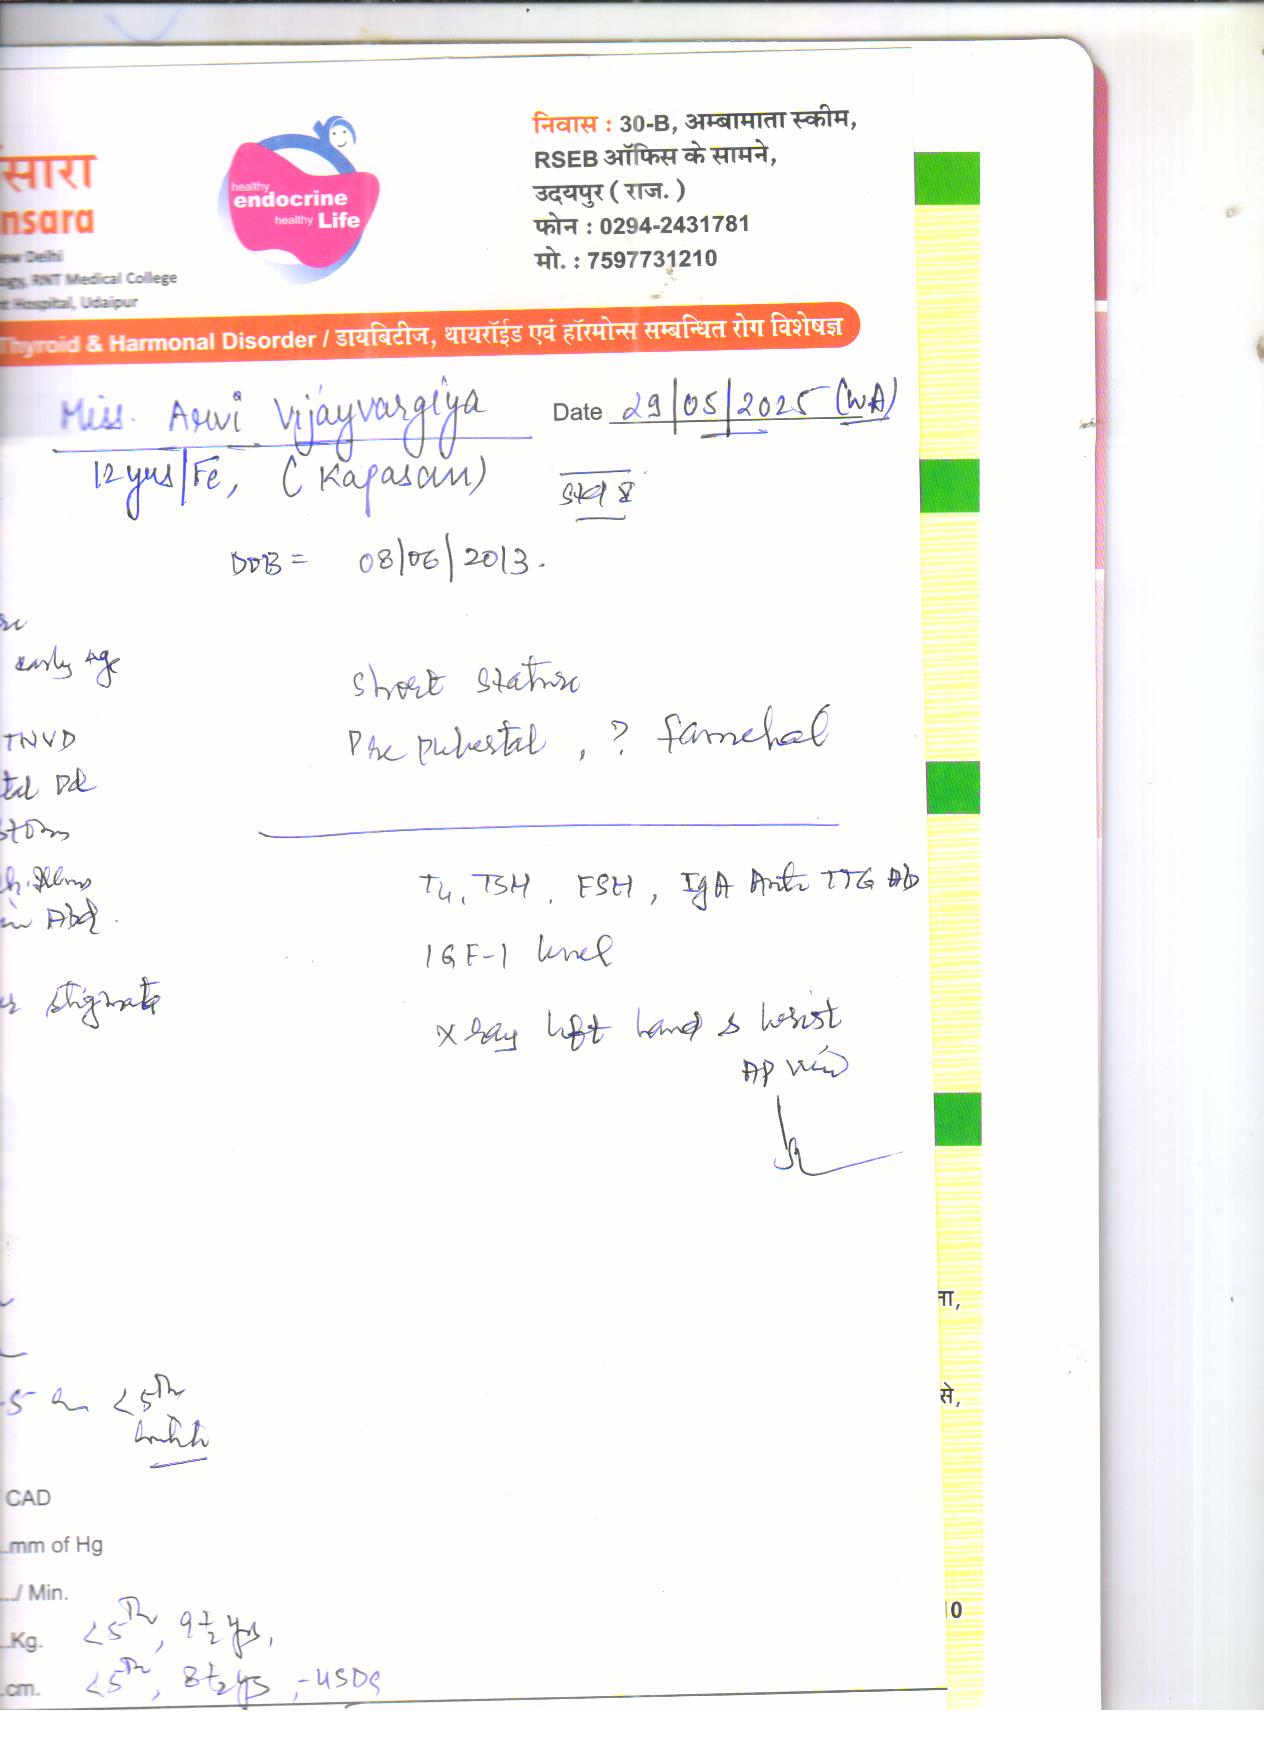 सारा
nsara
ew Delhi
ogy, RNT Medical College
t Hospital, Udaipur
healthy
endocrine
healthy Life
निवास : 30-B, अम्बामाता स्कीम,
RSEB ऑफिस के सामने,
उदयपुर ( राज. )
फोन : 0294-2431781
मो. : 7597731210
Thyroid & Harmonal Disorder / डायबिटीज, थायरॉईड एवं हॉरमोन्स सम्बन्धित रोग विशेषज्ञ
Miss. Arvi Vijayvargiya Date 29/05/2025 (WA)
12 yrs/Fe, ( Kapasan)
DOB = 08/06/2013.
early Age
Short stature
TNVD
Pre pubertal, ? familial
stigmata
T4, TSH, FSH, IgA Anti TTG Ab
IGF-1 level
X ray left hand & wrist
AP view
ना,
से,
.5 <5th
CAD
..mm of Hg
.../ Min.
0
..Kg. <5th, 9½ yrs,
.cm. <5th, 8½ yrs, -4SDS